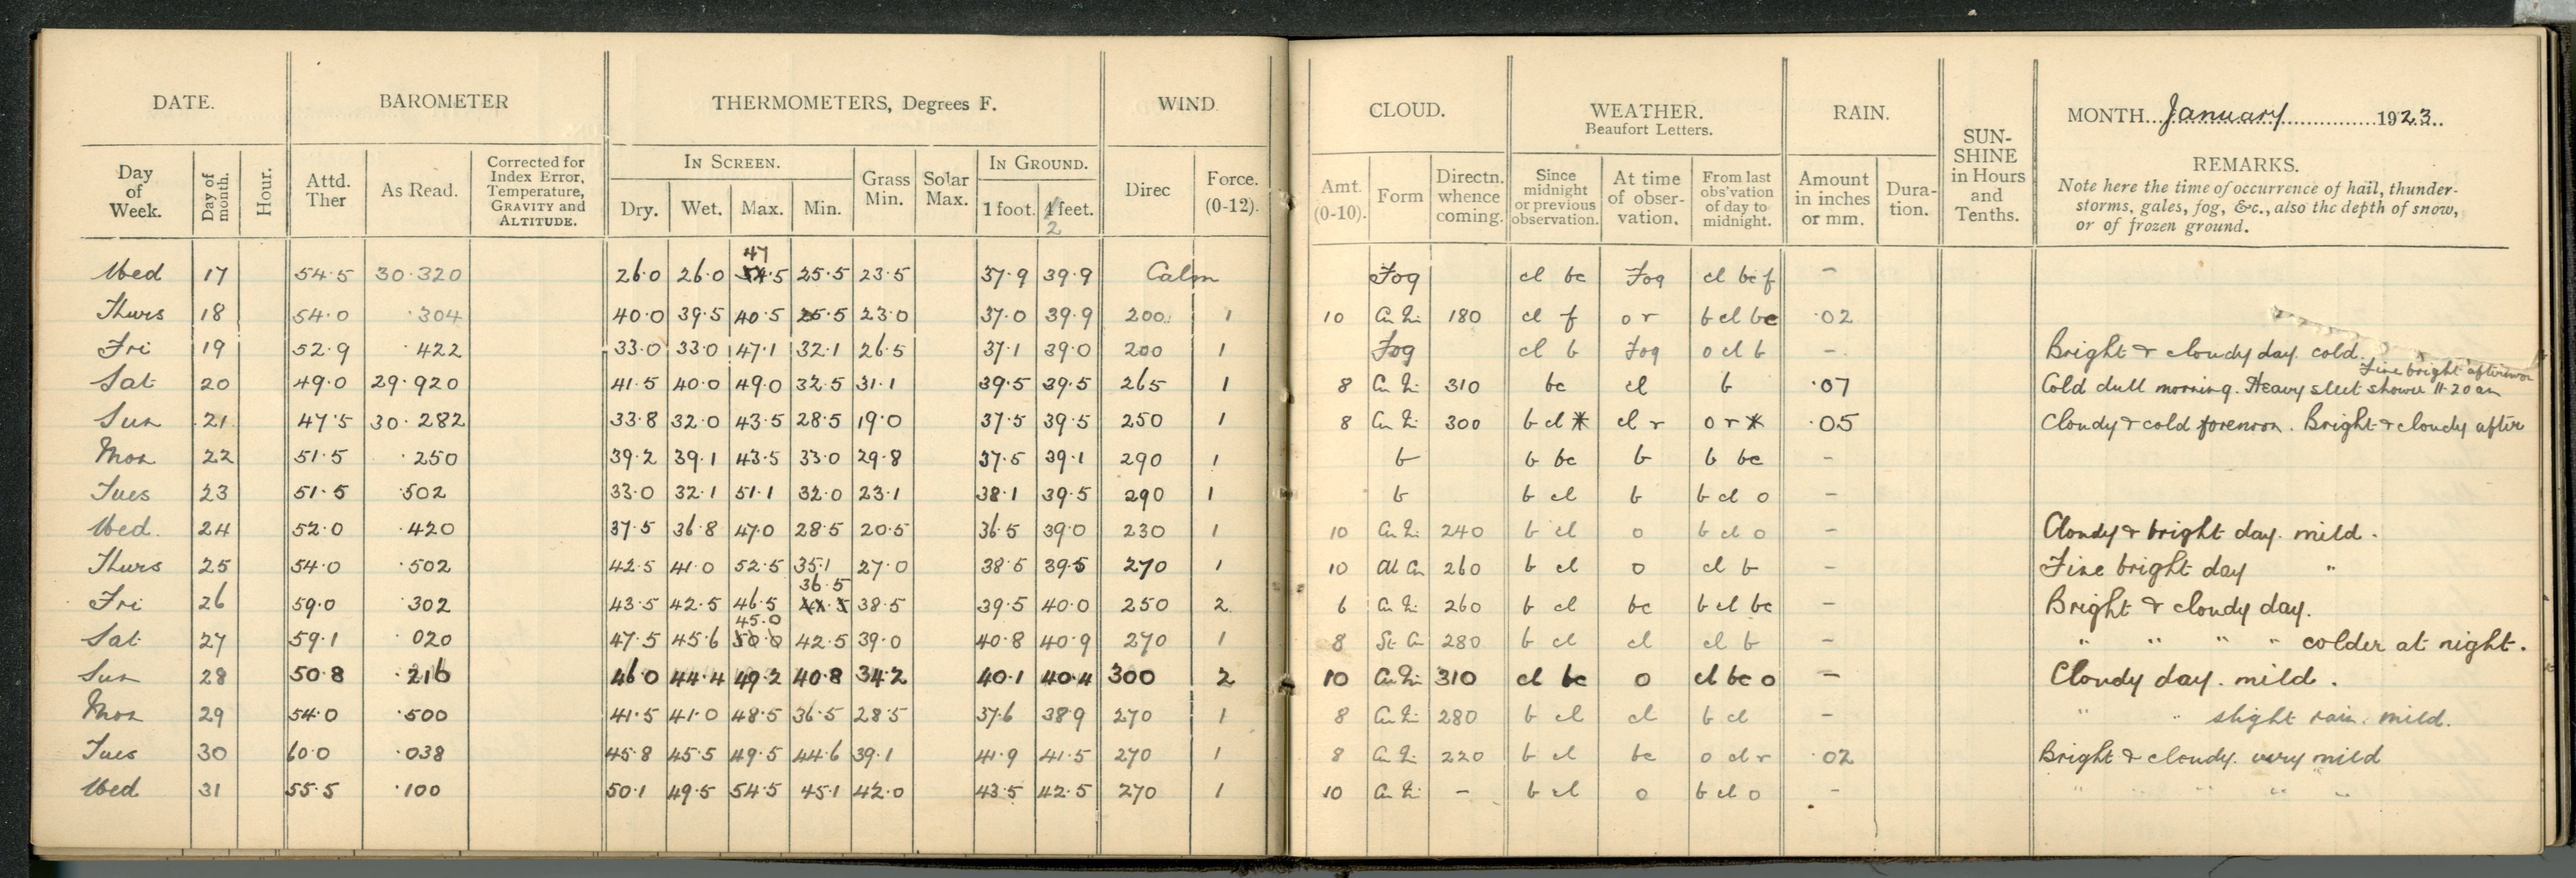 DATE. BAROMETER THERMOMETERS, Degrees F. WIND CLOUD. WEATHER. Beaufort Letters. RAIN. SUN-SHINE in Hours and Tenths. MONTH January 1923
Day of Week. Day of month. Hour. Attd. Ther As Read. Corrected for Index Error, Temperature, GRAVITY and ALTITUDE. IN SCREEN. Dry. Wet. Max. Min. Grass Min. Solar Max. IN GROUND. 1 foot. 4 feet. 2 Direc Force. (0-12). Amt. (0-10). Form Directn. whence coming. Since midnight or previous observation. At time of obser-vation. From last obs'vation of day to midnight. Amount in inches or mm. Dura-tion. REMARKS.
Note here the time of occurrence of hail, thunder-
storms, gales, fog, &c., also the depth of snow,
or of frozen ground.
47
Wed 17 54.5 30.320 26.0 26.0 .5 25.5 23.5 37.9 39.9 Calm Fog cl bc Fog cl bc f -
Thurs 18 54.0 .304 40.0 39.5 40.5 25.5 23.0 37.0 39.9 200 1 10 Cu Ni 180 cl f o r b cl bc .02
Fri 19 52.9 .422 33.0 33.0 47.1 32.1 26.5 37.1 39.0 200 1 Fog cl b Fog o cl b - Bright & cloudy day. cold.
Fine bright afternoon
Sat 20 49.0 29.920 41.5 40.0 49.0 32.5 31.1 39.5 39.5 265 1 8 Cu Ni 310 bc cl b .07 Cold dull morning. Heavy sleet shower 11.20 am
Sun 21 47.5 30.282 33.8 32.0 43.5 28.5 19.0 37.5 39.5 250 1 8 Cu Ni 300 b cl * cl r o r * .05 Cloudy & cold forenoon. Bright & cloudy after
Mon 22 51.5 .250 39.2 39.1 43.5 33.0 29.8 37.5 39.1 290 1 b b bc b b bc -
Tues 23 51.5 .502 33.0 32.1 51.1 32.0 23.1 38.1 39.5 290 1 b b cl b b cl o -
Wed. 24 52.0 .420 37.5 36.8 47.0 28.5 20.5 36.5 39.0 230 1 10 Cu Ni 240 b cl o b cl o - Cloudy & bright day. mild.
Thurs 25 54.0 .502 42.5 41.0 52.5 35.1 27.0 38.5 39.5 270 1 10 Al Cu 260 b cl o cl b - Fine bright day "
36.5
Fri 26 59.0 .302 43.5 42.5 46.5 38.5 39.5 40.0 250 2 6 Cu Ni 260 b cl bc b cl bc - Bright & cloudy day.
45.0
Sat 27 59.1 .020 47.5 45.6 50.0 42.5 39.0 40.8 40.9 270 1 8 St Cu 280 b cl cl cl b - " " " " colder at night.
Sun 28 50.8 .216 46.0 44.4 49.2 40.8 34.2 40.1 40.4 300 2 10 Cu Ni 310 cl bc o cl bc o - Cloudy day. mild.
Mon 29 54.0 .500 41.5 41.0 48.5 36.5 28.5 37.6 38.9 270 1 8 Cu Ni 280 b cl cl b cl - " " slight rain. mild.
Tues 30 60.0 .038 45.8 45.5 49.5 44.6 39.1 41.9 41.5 270 1 8 Cu Ni 220 b cl bc o cl r .02 Bright & cloudy. very mild
Wed 31 55.5 .100 50.1 49.5 54.5 45.1 42.0 43.5 42.5 270 1 10 Cu Ni - b cl o b cl o - " " " " "